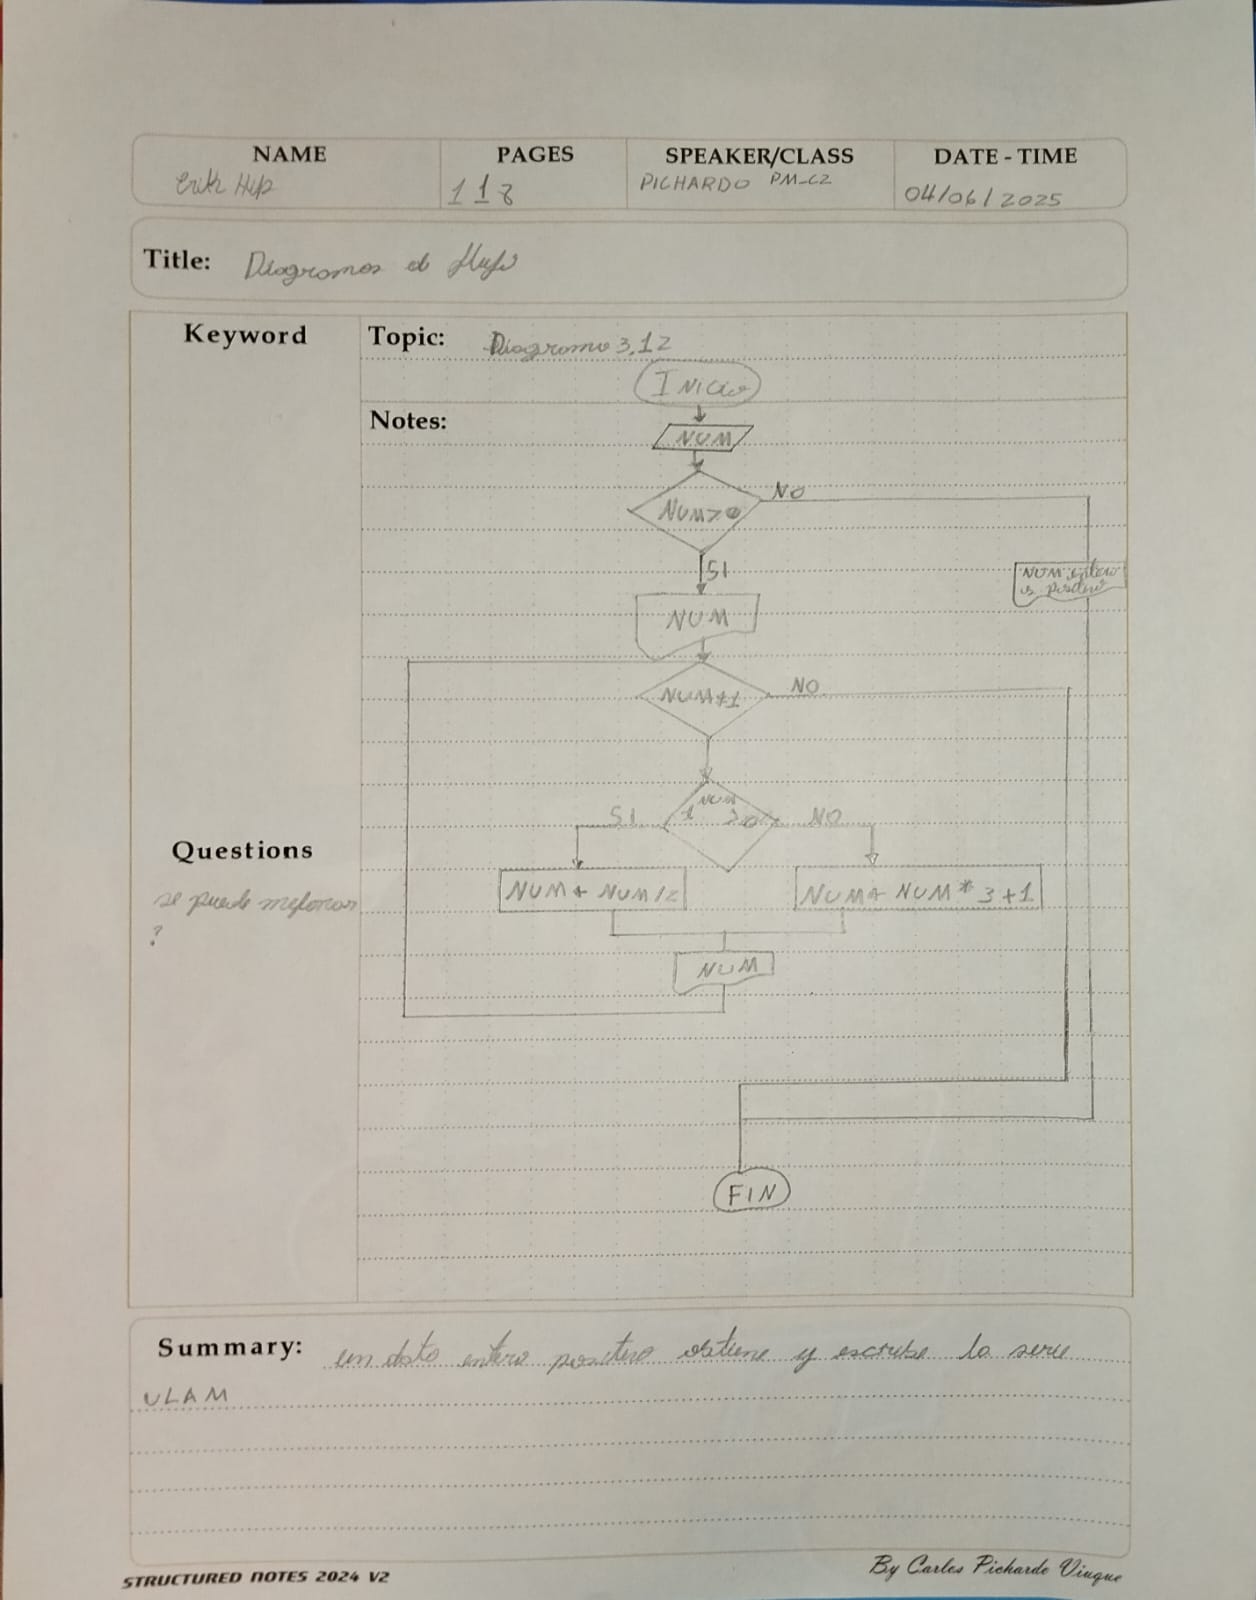 NAME PAGES SPEAKER/CLASS DATE - TIME
Erik 118 PICHARDO PM-C2 04/06/2025
Title: Diagramas d flujo
Keyword Topic: Diagrama 3.12
INICIO
Notes:
NUM
NO
NUM>0
SI
NUM entero
positivo
NUM
NO
NUM≠1
NUM
SI NO
Questions
NUM← NUM/2 NUM← NUM * 3+1
se puede mejorar
?
NUM
FIN
Summary: un dato entero positivo obtiene y escribe la serie
ULAM
STRUCTURED NOTES 2024 V2 By Carlos Pichardo Viuque